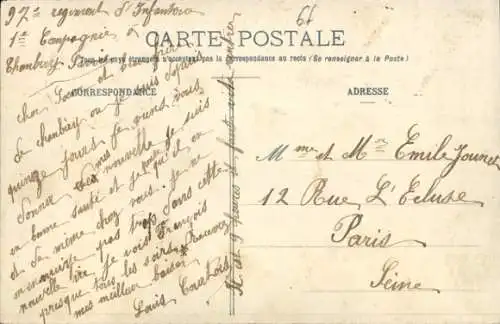 97e regiment d'Infanterie
1e Compagnie
Chambéry Savoie
61
CARTE POSTALE
Tous les pays étrangers n'acceptent pas la Correspondance au recto (Se renseigner à la Poste)
CORRESPONDANCE
ADRESSE
Cher
De chambéry ou je suis depuis
quinze jours je viens vous
donner des mes nouvelle je suis
en bonne santé et je qu'il en
est de même chez vous. je ne
m'ennuie pas trop dans cette
nouvelle vie je vois François
presque tous les soirs. Recevez
mes meilleur baiser
Louis
Mme et Mr Emile
12 Rue L'Ecluse
Paris
Seine